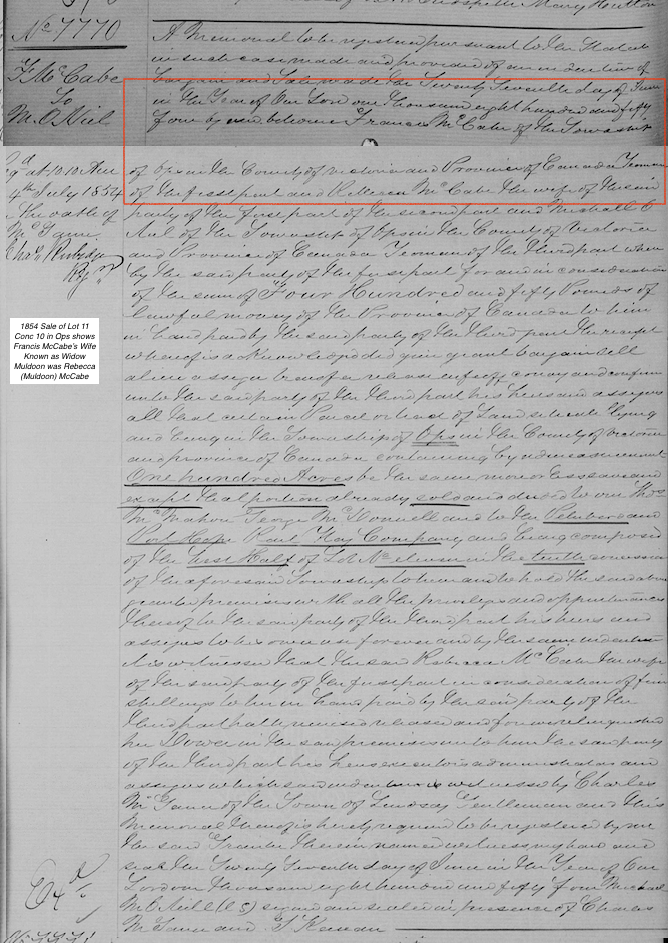 No 7770
F. McCabe
To
M. O Niel
A Memorial to be registered pursuant to the Statute
in such case made and provided of an indenture of
bargain and sale made the Twenty Seventh day of June
in the Year of Our Lord one thousand eight hundred and fifty
four by and between Francis McCabe of the Township
of Ops in the County of Victoria and Province of Canada Yeoman
of the first part and Rebecca McCabe the wife of the said
party of the first part of the second part and Michall O
Niel of the Township of Ops in the County of Victoria
and Province of Canada Yeoman of the third part where
by the said party of the first part for and in consideration
of the sum of Four Hundred and fifty Pounds of
lawful money of the Province of Canada to him
in hand paid by the said party of the third part the receipt
whereof is acknowledged give grant bargain sell
alien assign transfer release enfeoff convey and confirm
unto the said party of the third part his heirs and assigns
all that certain Parcel or tract of Land situate lying
and being in the Township of Ops in the County of Victoria
and province of Canada containing by admeasurement
One hundred Acres be the same more or less save and
except that portion already sold and deeded to one Thos
McMahon George McDonnell and to the Peterboro and
Port Hope Rail Way Company and being composed
of the East Half of Lot No eleven in the tenth concession
of the aforesaid Township to have and to hold the said above
granted premises with all the privileges and appurtenances
thereof to the said party of the third part his heirs and
assigns to his own use forever and by the same indenture
it is witnessed that the said Rebecca McCabe the wife
of the said party of the first part in consideration of five
shillings to her in hand paid by the said party of the
third part hath remised released and forever relinquished
her Dower in the said premises unto him the said party
of the third part his heirs executors administrators and
assigns which said indenture is witnessed by Charles
of the Town of Lindsay Gentleman and this
Memorial thereof is hereby required to be registered by me
the said Grantee therein named witness my hand and
seal the Twenty Seventh day of June in the Year of Our
Lord one thousand eight hundred and fifty four Michael
McO'Neill (LS) signed and sealed in presence of Charles
and T Keenan
at 10.10 A.m
4th July 1854
The oath of
Chas Rubidge
Regr
1854 Sale of Lot 11
Conc 10 in Ops shows
Francis McCabe's Wife
Known as Widow
Muldoon was Rebecca
(Muldoon) McCabe
Exd
No 7771